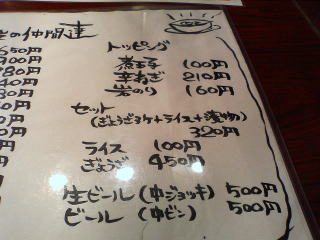 の仲間達
650円
900円
トッピング
煮玉子 100円
辛ねぎ 210円
岩のり 160円
セット
(ぎょうざ3ケ+ライス+漬物)
320円
ライス 100円
ぎょうざ 450円
生ビール (中ジョッキ) 500円
ビール (中ビン) 500円